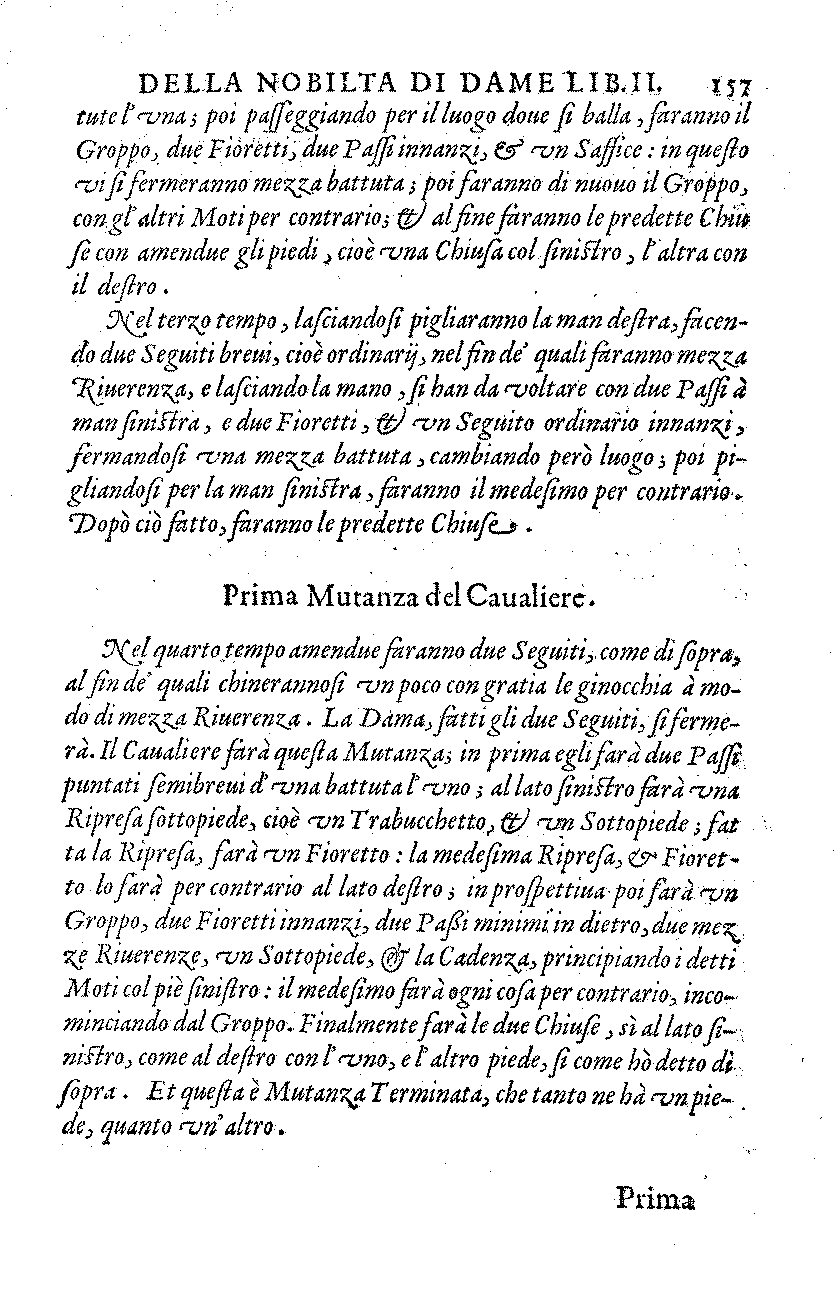 DELLA NOBILTA DI DAME LIB. II. 157
tute l'vna; poi paſſeggiando per il luogo doue ſi balla, faranno il
Groppo, due Fioretti, due Paſſi innanzi, & vn Saffice: in queſto
vi ſi fermeranno mezza battuta; poi faranno di nuouo il Groppo,
con gl'altri Moti per contrario; & al fine faranno le predette Chiu
ſe con amendue gli piedi, cioè vna Chiuſa col ſiniſtro, l'altra con
il deſtro.
Nel terzo tempo, laſciandoſi pigliaranno la man deſtra, facen-
do due Seguiti breui, cioè ordinarij, nel fin de' quali faranno mezza
Riuerenza, e laſciando la mano, ſi han da voltare con due Paſſi à
man ſiniſtra, e due Fioretti, & vn Seguito ordinario innanzi,
fermandoſi vna mezza battuta, cambiando però luogo; poi pi-
gliandoſi per la man ſiniſtra, faranno il medeſimo per contrario.
Dopò ciò fatto, faranno le predette Chiuſe.
Prima Mutanza del Caualiere.
Nel quarto tempo amendue faranno due Seguiti, come di ſopra,
al fin de' quali chinerannoſi vn poco con gratia le ginocchia à mo-
do di mezza Riuerenza. La Dama, fatti gli due Seguiti, ſi ferme-
rà. Il Caualiere farà queſta Mutanza; in prima egli farà due Paſſi
puntati ſemibreui d'vna battuta l'vno; al lato ſiniſtro farà vna
Ripreſa ſottopiede, cioè vn Trabucchetto, & vn Sottopiede; fat
ta la Ripreſa, farà vn Fioretto: la medeſima Ripreſa, & Fioret-
to lo farà per contrario al lato deſtro; in proſpettiua poi farà vn
Groppo, due Fioretti innanzi, due Paßi minimi in dietro, due mez
ze Riuerenze, vn Sottopiede, & la Cadenza, principiando i detti
Moti col piè ſiniſtro: il medeſimo farà ogni coſa per contrario, inco-
minciando dal Groppo. Finalmente farà le due Chiuſe, sì al lato ſi-
niſtro, come al deſtro con l'vno, e l'altro piede, ſi come hò detto di
ſopra. Et queſta è Mutanza Terminata, che tanto ne hà vn pie-
de, quanto vn'altro.
Prima